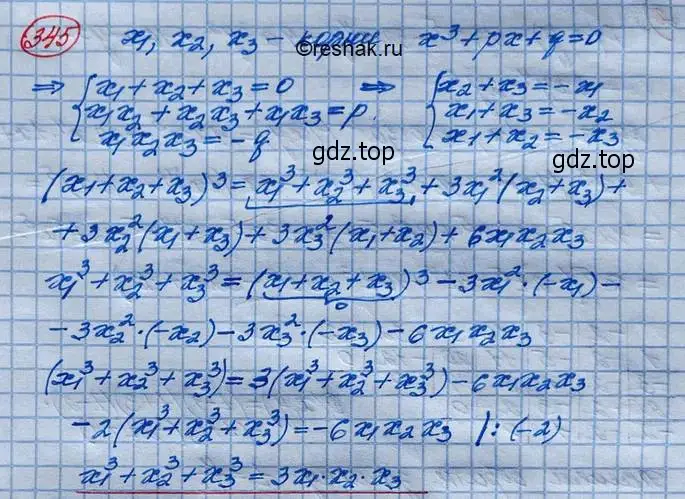 345 x₁, x₂, x₃ – корни x³+px+q=0
©reshak.ru
⇒ { x₁+x₂+x₃=0 ⇒ { x₂+x₃=-x₁
x₁x₂+x₂x₃+x₁x₃=p. x₁+x₃=-x₂
x₁x₂x₃=-q x₁+x₂=-x₃
gdz.top gdz.top
(x₁+x₂+x₃)³=x₁³+x₂³+x₃³+3x₁²(x₂+x₃)+
+3x₂²(x₁+x₃)+3x₃²(x₁+x₂)+6x₁x₂x₃
x₁³+x₂³+x₃³=(x₁+x₂+x₃)³-3x₁²·(-x₁)-
0
-3x₂²·(-x₂)-3x₃²·(-x₃)-6x₁x₂x₃
(x₁³+x₂³+x₃³)=3(x₁³+x₂³+x₃³)-6x₁x₂x₃
-2(x₁³+x₂³+x₃³)=-6x₁x₂x₃ |:(-2)
x₁³+x₂³+x₃³=3x₁·x₂·x₃